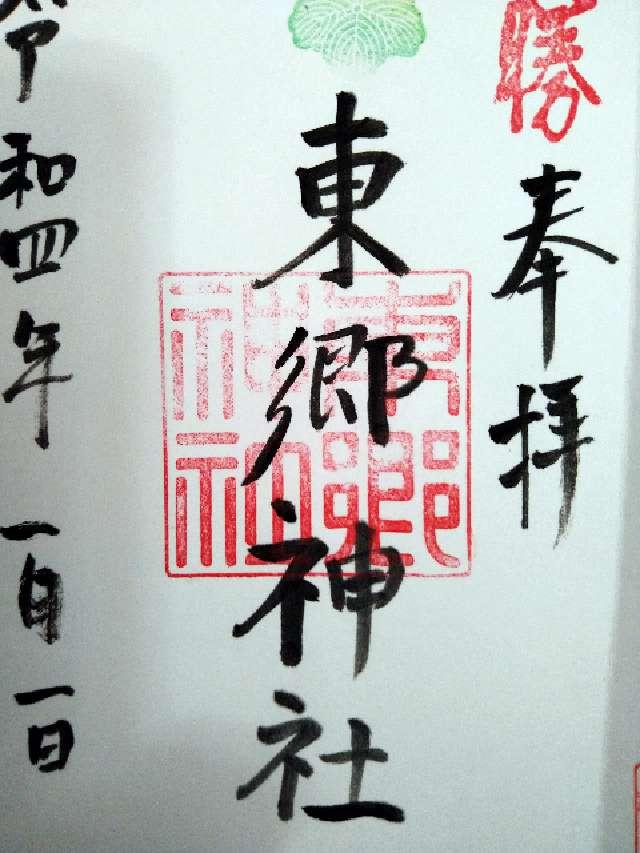 勝
奉拝
東郷神社
東郷神社
令和四年一月一日